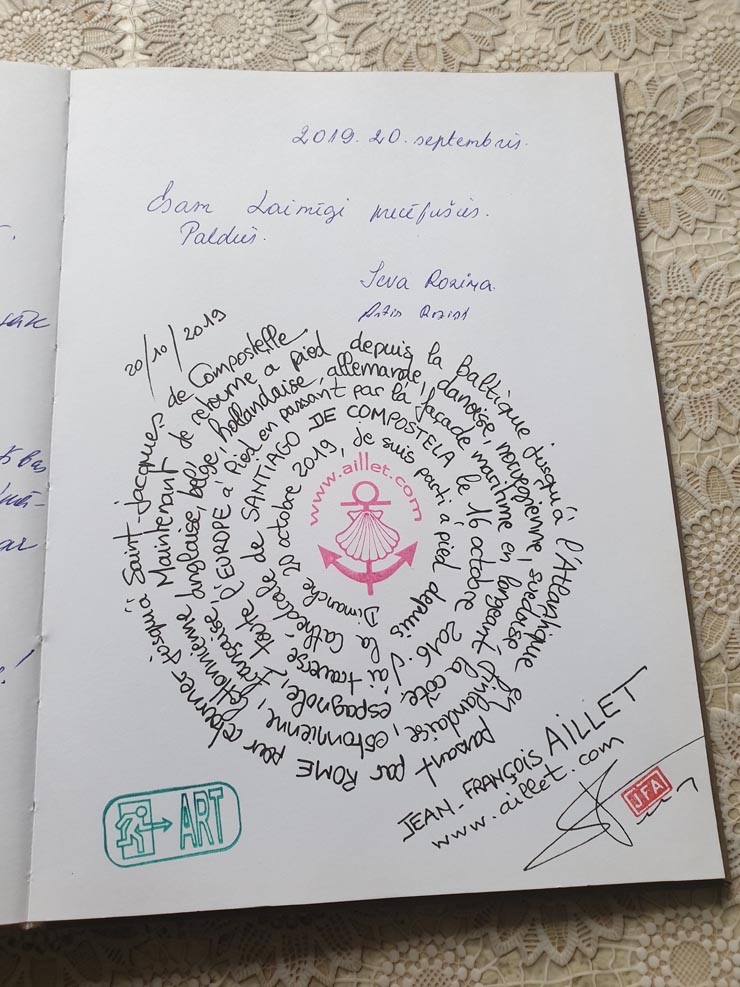 2019. 20. septembris.
Esam Laimīgi precējušies.
Paldies.
Ieva Roziņa
20/10/2019
Dimanche 20 octobre 2019, je suis parti à pied depuis la Cathédrale de SANTIAGO DE COMPOSTELA le 16 octobre 2016. J'ai traversé toute l'EUROPE à pied en passant par la façade maritime en longeant la côte, espagnole, française, anglaise, belge, hollandaise, allemande, danoise, norvégienne, suédoise, finlandaise, estonnienne, lettonnienne Maintenant je retourne à pied depuis la Baltique jusqu'à l'Atlantique en passant par ROME pour retourner jusqu'à Saint-Jacques de Compostelle
www.aillet.com
JEAN-FRANÇOIS AILLET
www.aillet.com
JFA
ART